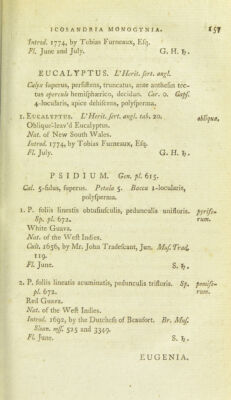 ICOSANDRIA MONOGYNIA. 157
Introd. 1774, by Tobias Furneaux, Esq.
Fl. June and July. G. H. ♄.
EUCALYPTUS. L'Herit. sert. angl.
Calyx superus, persistens, truncatus, ante anthesin tec-
tus operculo hemisphærico, deciduo. Cor. 0. Caps.
4-locularis, apice dehiscens, polysperma.
1. Eucalyptus. L'Herit. sert. angl. tab. 20. obliqua.
Oblique-leav'd Eucalyptus.
Nat. of New South Wales.
Introd. 1774, by Tobias Furneaux, Esq.
Fl. July. G. H. ♄.
PSIDIUM. Gen. pl. 615.
Cal. 5-fidus, superus. Petala 5. Bacca 1-locularis,
polysperma.
1. P. foliis lineatis obtusiusculis, pedunculis unifloris. pyrife-
Sp. pl. 672. rum.
White Guava.
Nat. of the West Indies.
Cult. 1656, by Mr. John Tradescant, Jun. Mus. Trad.
119.
Fl. June. S. ♄.
2. P. foliis lineatis acuminatis, pedunculis trifloris. Sp. pomife-
pl. 672. rum.
Red Guava.
Nat. of the West Indies.
Introd. 1692, by the Dutchess of Beaufort. Br. Mus.
Sloan. mss. 525 and 3349.
Fl. June. S. ♄.
EUGENIA.